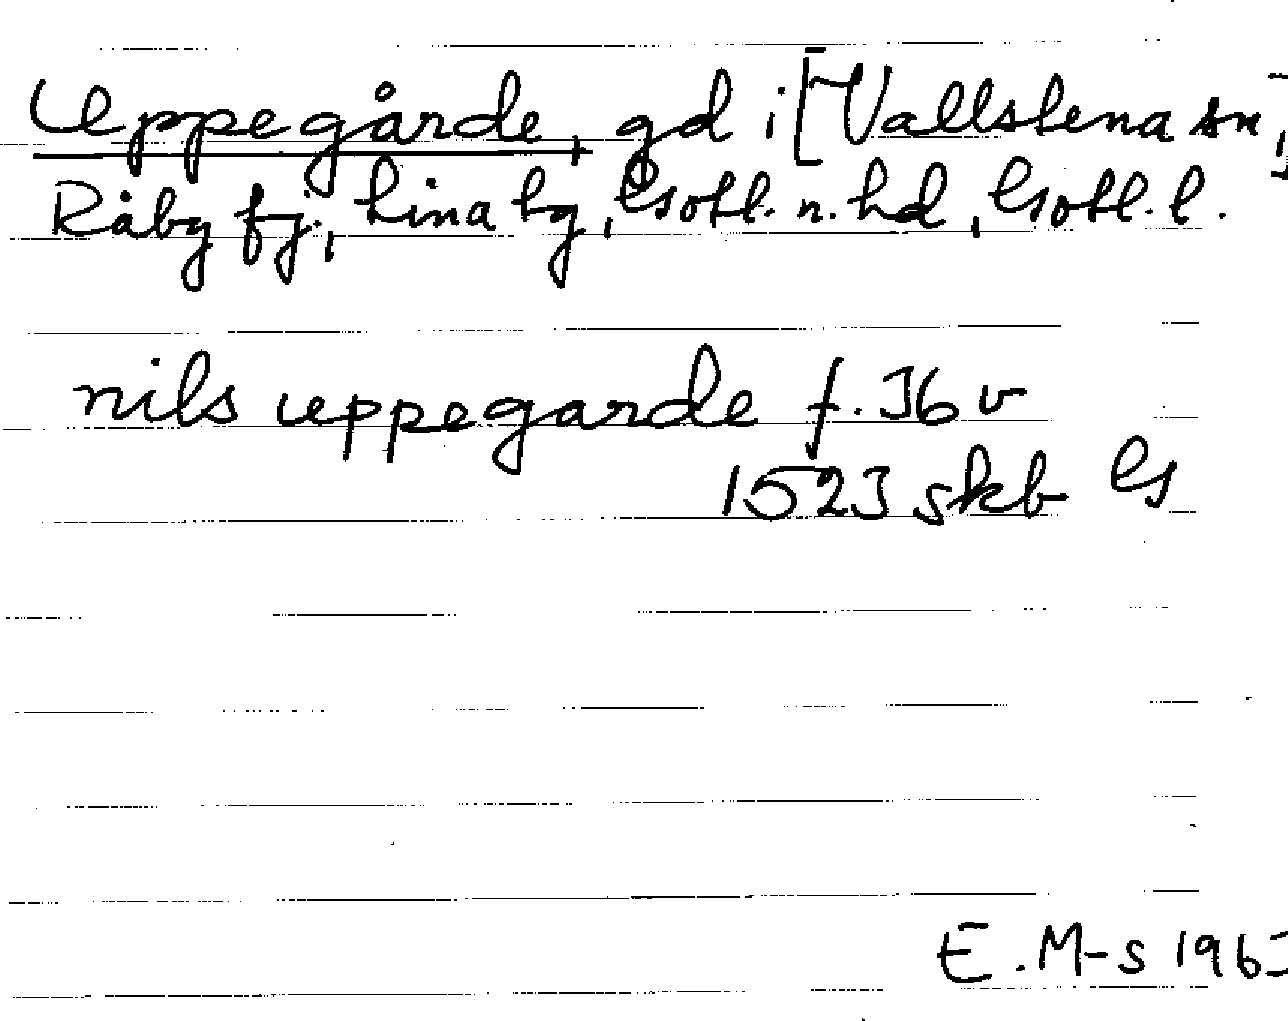 Uppegårde, gd i [Vallstena sn,]
Råby fj., Lina tg, Gotl. n. hd, Gotl. l.
nils uppegarde f. 36 v
1523 skb G
E. M-s 1963